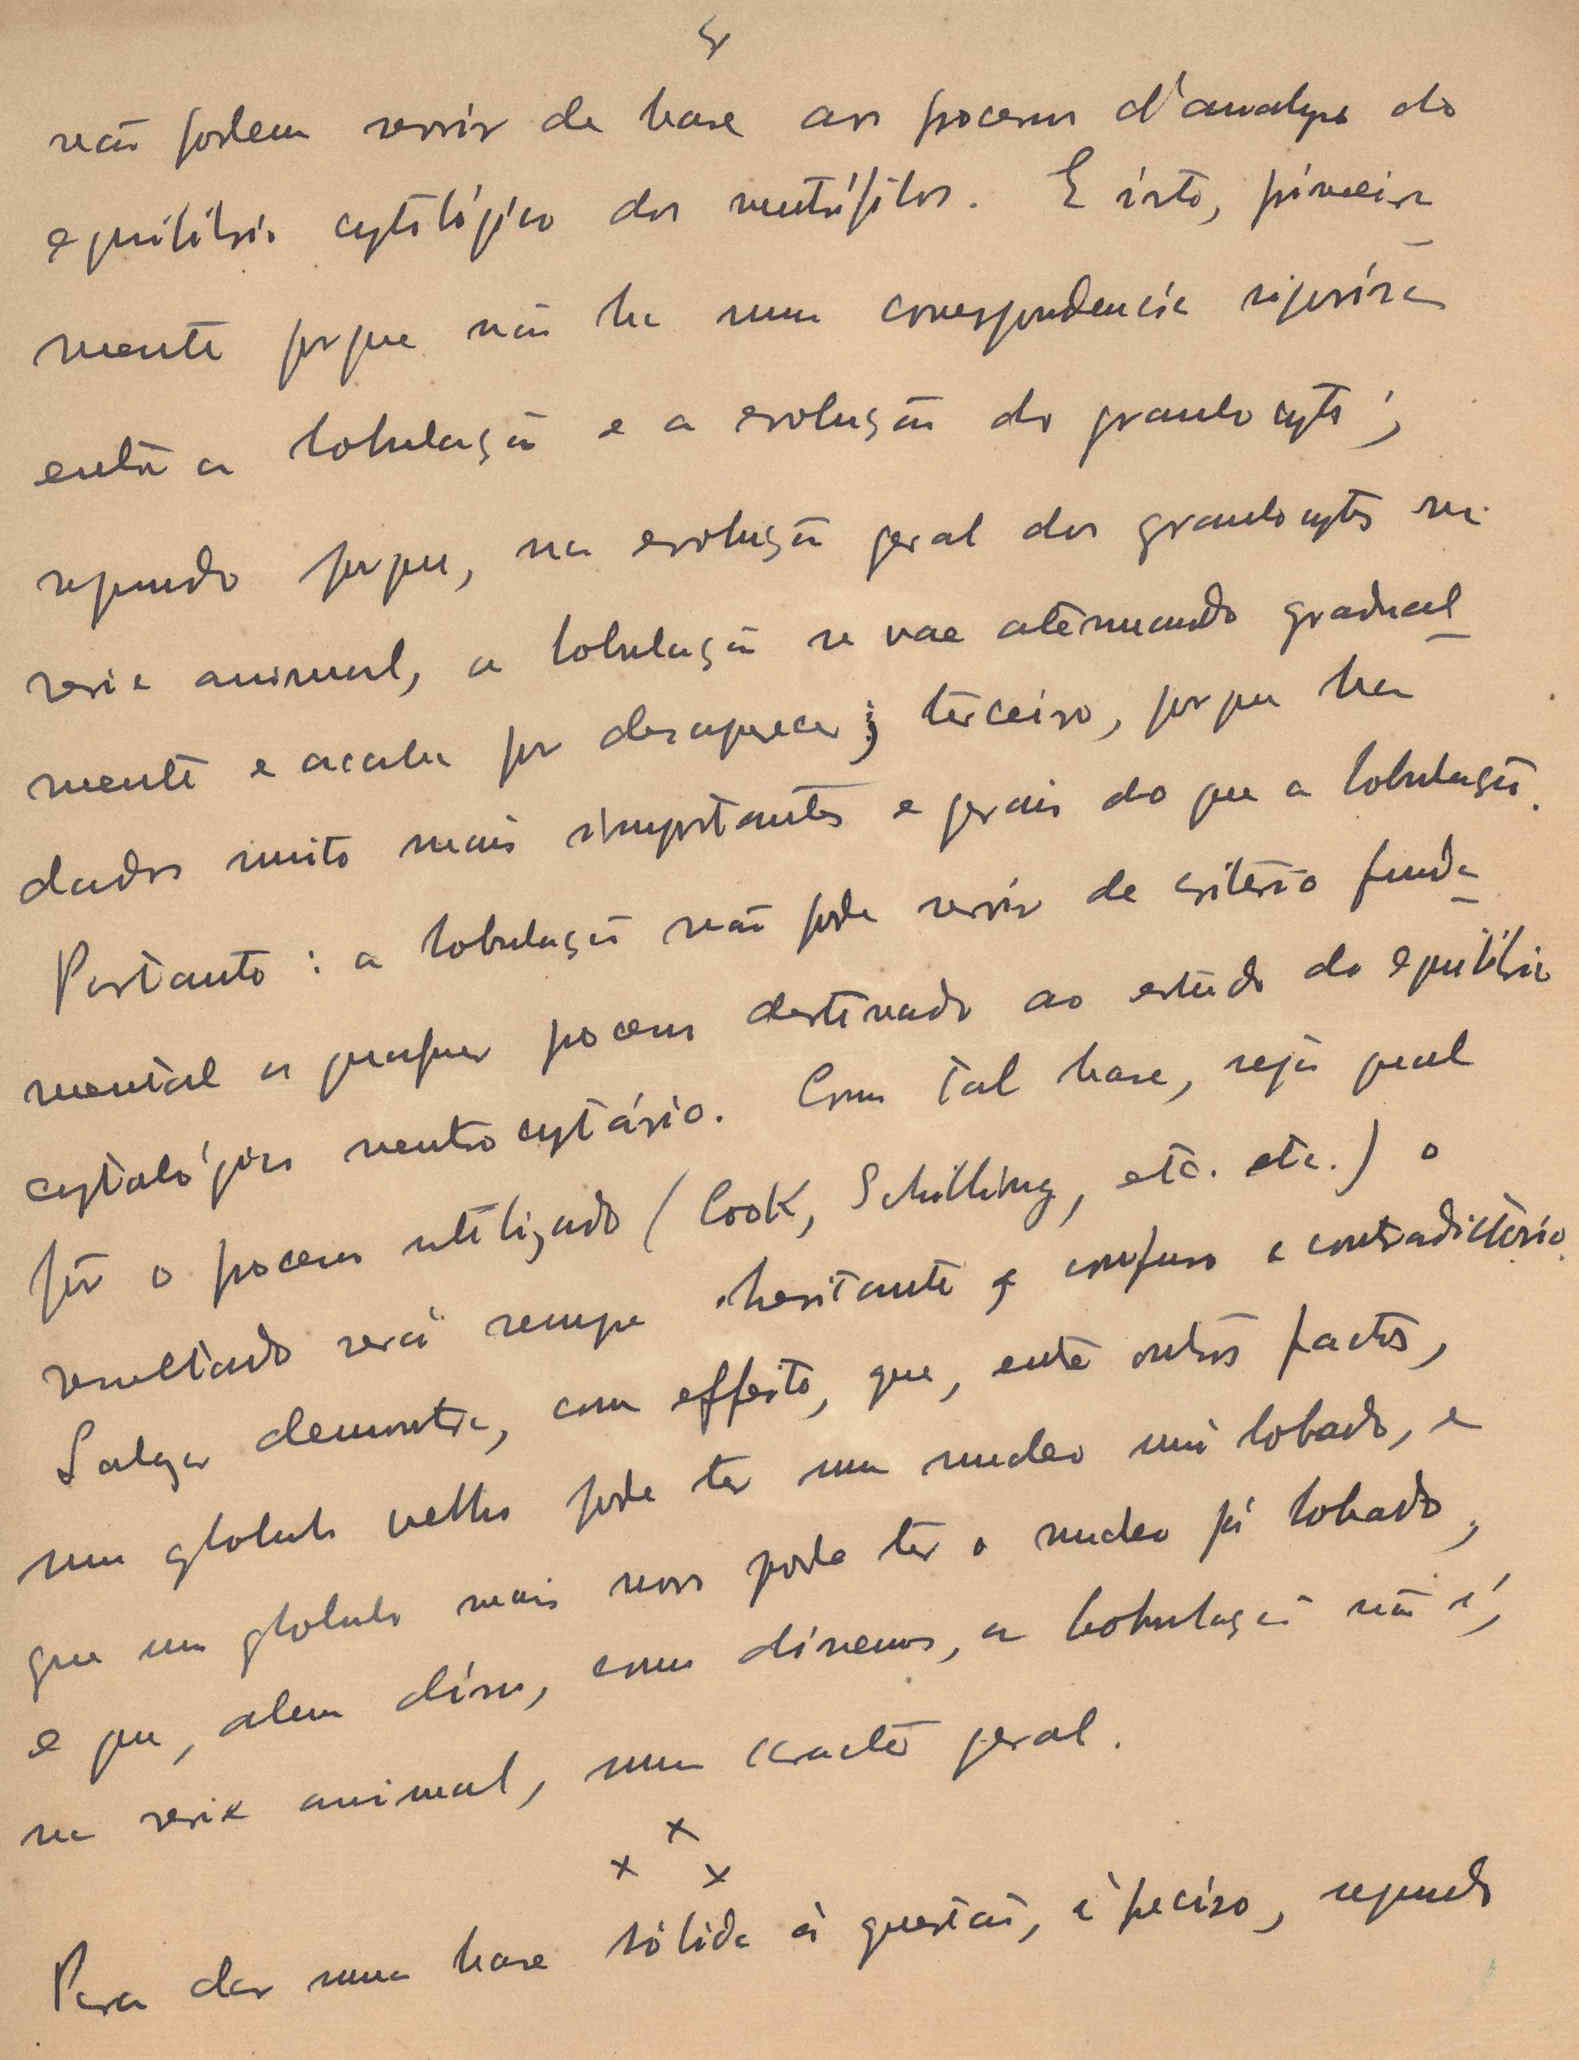 5
não podem servir de base aos processos d'analyse do
equilibrio cytológico dos neutrófilos. E isto, primeira-
mente porque não ha uma correspondencia rigorosa
entre a lobulação e a evolução do granulocyto;
segundo porque, na evolução geral dos granulocytos na
serie animal, a lobulação se vae atenuando gradual-
mente e acaba por desaparecer; terceiro, porque ha
dados muito mais importantes e gerais do que a lobulação.
Portanto: a lobulação não pode servir de criterio funda-
mental a qualquer processo destinado ao estudo do equilibrio
cytológico neutrocytário. Com tal base, seja qual
fôr o processo utilizado (Cook, Schilling, etc. etc.) o
resultado será sempre hesitante e confuso e contradictorio.
demonstra, com effeito, que, entre outros factos,
um globulo velho pode ter um nucleo uni lobado, e
que um globulo mais novo pode ter o nucleo já lobado,
e que, alem disso, como dissemos, a lobulação não é,
na serie animal, um caracter geral.
x x x
Para dar uma base sólida á questão, é preciso, segundo